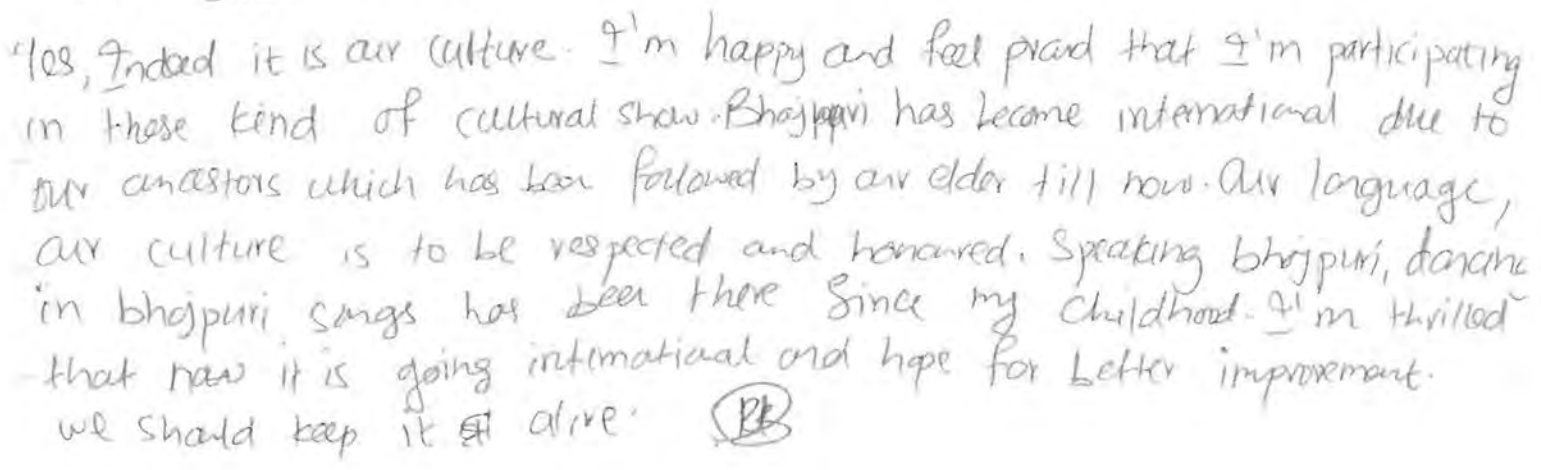 Yes, Indeed it is our culture. I'm happy and feel proud that I'm participating
in these kind of cultural show. Bhojpuri has become international due to
our ancestors which has been followed by our elder till now. Our language,
our culture is to be respected and honoured. Speaking bhojpuri, dancing
in bhojpuri songs has been there Since my Childhood. I'm thrilled
that now it is going international and hope for better improvement.
we should keep it alive.